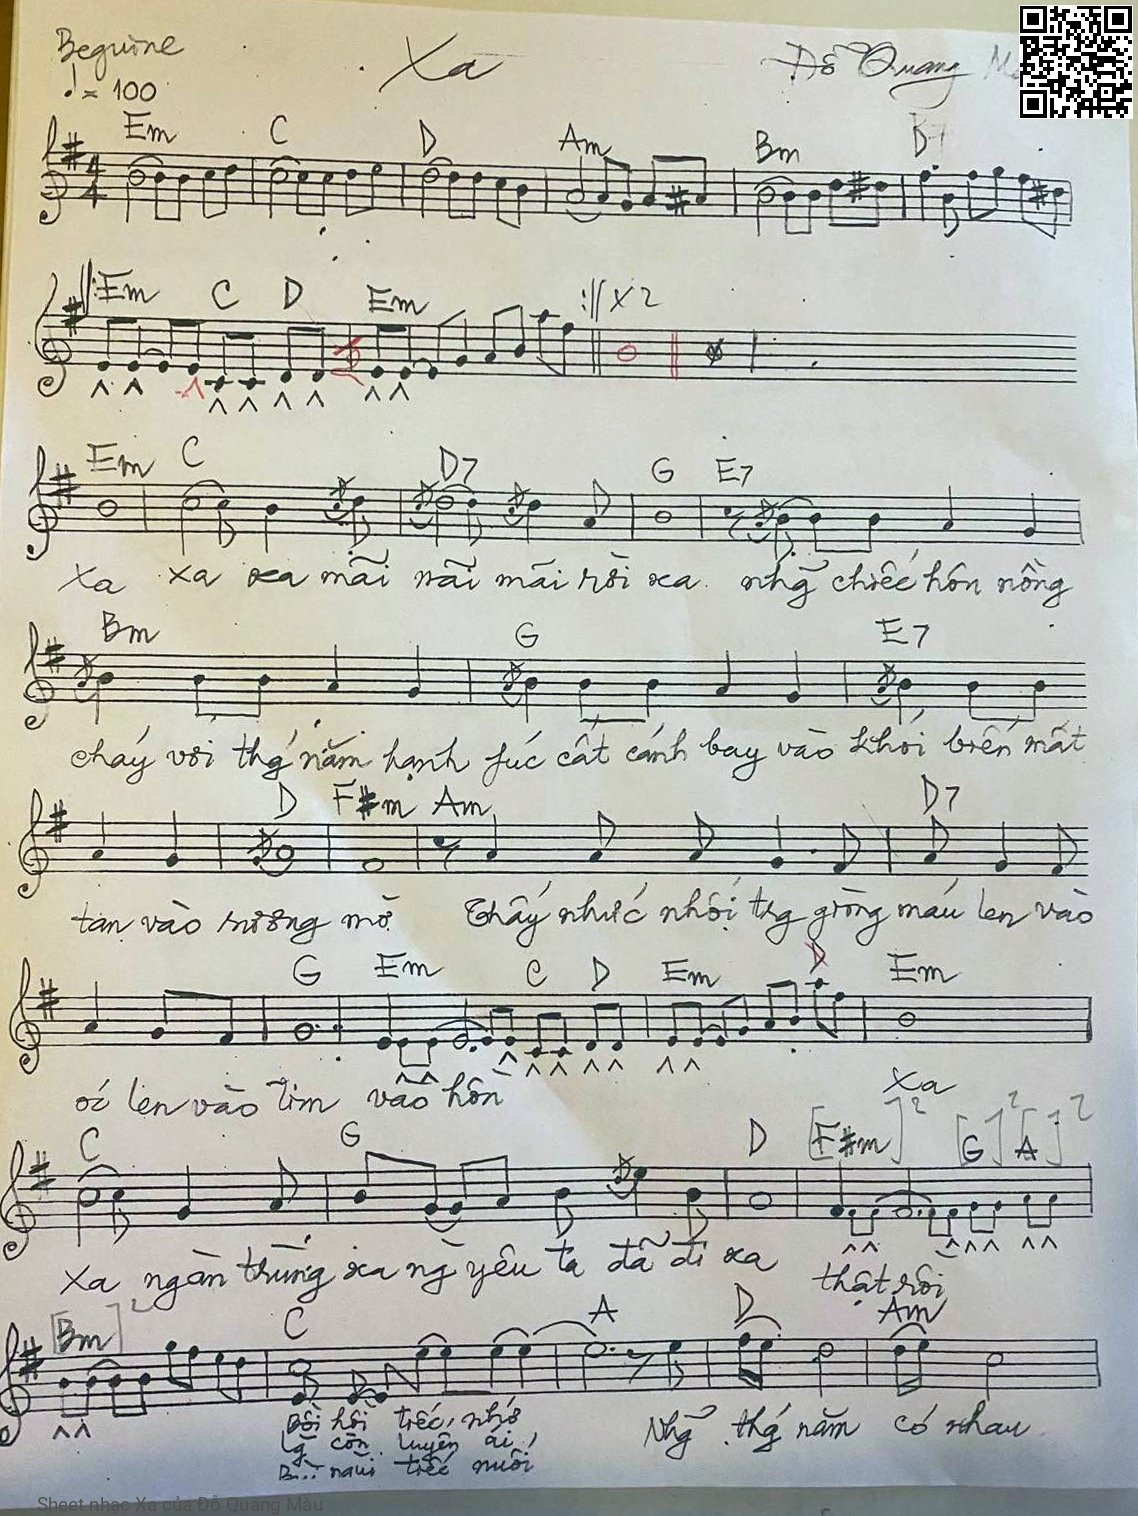 Beguine
Xa
Đỗ Quang
♩= 100
Em C D Am Bm B7
Em C D Em :// X2
Em C D7 G E7
Xa xa xa mãi mãi mãi rồi xa. nhg̃ chiếc hôn nồng
Bm G E7
cháy với thg´ năm hạnh fúc cất cánh bay vào khói biến mất
D F#m Am D7
tan vào sương mờ Thấy nhức nhối trg giòng máu len vào
G Em C D Em D Em
óc len vào tim vào hồn
Xa
C G D [F#m]2 [G]2 [A]2
Xa ngàn trùng xa ng` yêu ta đã đi xa thật rồi
[Bm]2 C A D Am
Bồi hồi tiếc, nhớ Nhg̃ thg´ năm có nhau
còn luyến ái,
nuối tiếc nuối
Sheet nhạc Xa của Đỗ Quang Màu